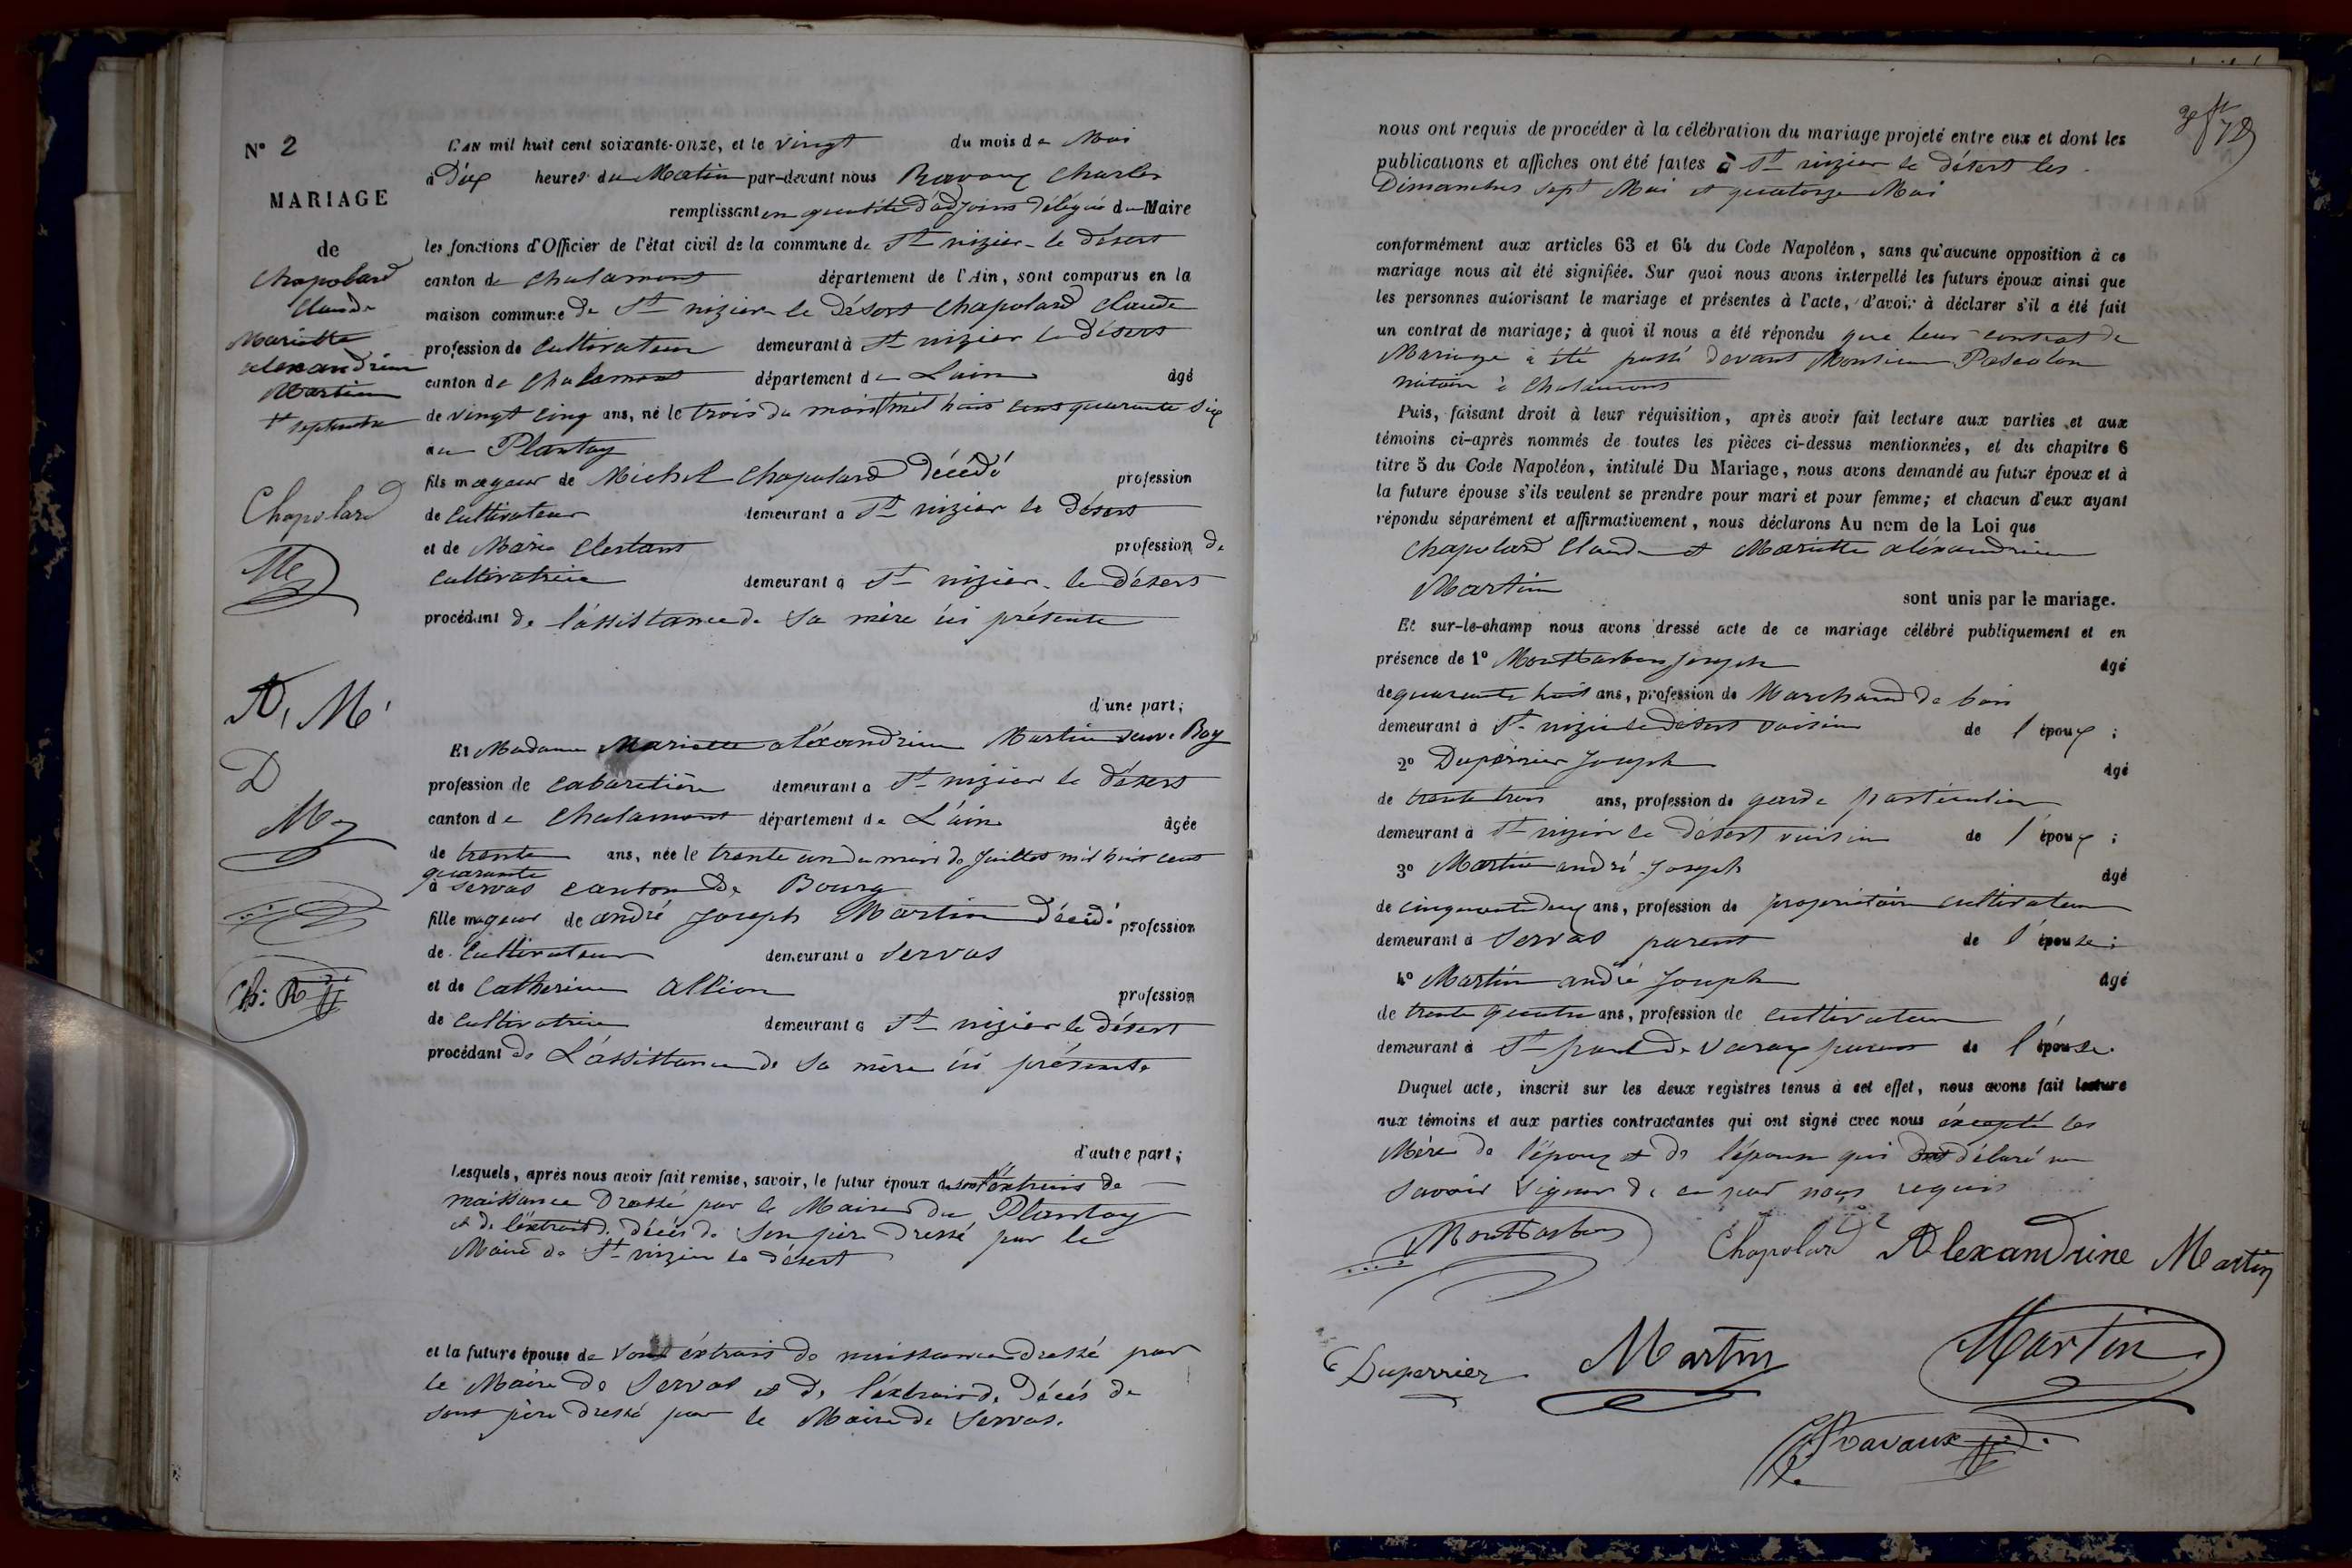 N° 2
MARIAGE
de
Chapolard
Claude
Mariette
alexandrine
Martin
Chapolard
A, M
D
M
L'AN mil huit cent soixante-onze, et le vingt du mois de Mai
à Dix heures du Matin par-devant nous Ravaux Charles
remplissant en qualité d'adjoint délégué du Maire
les fonctions d'Officier de l'état civil de la commune de St nizier le désert
canton de Chalamont département de l'Ain, sont comparus en la
maison commune de St nizier le Désert Chapolard Claude
profession de Cultivateur demeurant à St nizier le Désert
canton de Chalamont département de L'ain âgé
de vingt cinq ans, né le trois du mois mil huit cent quarante six
au Plantay
fils mageur de Michel Chapolard Décédé profession
de Cultivateur demeurant a St nizier le Désert
et de Marie profession de
Cultivatrice demeurant a St nizier le Désert
procédant de l'assistance de Sa mère ici présente
d'une part;
Et Madame Mariette aléxandrine Martin veuve Roy
profession de cabaretière demeurant a St nizier le Désert
canton de Chalamont département de L'ain âgée
de trente ans, née le trente un du mois de Juillet mil huit cent
quarante
à Servas canton de Bourg
fille mageur de andré Joseph Martin décédé profession
de Cultivateur demeurant a Servas
et de Catherine Allion profession
de cultivatrice demeurant a St nizier le Désert
procédant de L'assistance de Sa mère ici présente
d'autre part;
Lesquels, après nous avoir fait remise, savoir, le futur époux de son éxtrais de
naissance Dressé par le Maire du Plantay
et de l'éxtrait de décès de Son père Dressé par le
Maire de St nizier le désert
et la future épouse de éxtrais de naissance Dressé par
le Maire de Servas et de l'éxtrais de Décés de
sont père dressé par le Maire de Servas.
nous ont requis de procéder à la célébration du mariage projeté entre eux et dont les
publications et affiches ont été faites à St nizier le désert les
Dimanches sept Mai et quatorze Mai
conformément aux articles 63 et 64 du Code Napoléon, sans qu'aucune opposition à ce
mariage nous ait été signifiée. Sur quoi nous avons interpellé les futurs époux ainsi que
les personnes autorisant le mariage et présentes à l'acte, d'avoir à déclarer s'il a été fait
un contrat de mariage; à quoi il nous a été répondu que leur contrat de
Mariage à été passé devant Monsieur
notaire à Chalamont
Puis, faisant droit à leur réquisition, après avoir fait lecture aux parties et aux
témoins ci-après nommés de toutes les pièces ci-dessus mentionnées, et du chapitre 6
titre 5 du Code Napoléon, intitulé Du Mariage, nous avons demandé au futur époux et à
la future épouse s'ils veulent se prendre pour mari et pour femme; et chacun d'eux ayant
répondu séparément et affirmativement, nous déclarons Au nom de la Loi que
Chapolard Claude et Mariette aléxandrine
Martin
sont unis par le mariage.
Et sur-le-champ nous avons dressé acte de ce mariage célébré publiquement et en
présence de 1° Montbarbon Joseph âgé
de quarante huit ans, profession de Marchand de bois
demeurant à St nizier le Désert voisin de l'époux;
2° Duperrier Joseph âgé
de trente trois ans, profession de garde particulier
demeurant à St nizier le Désert voisin de l'époux;
3° Martin andré Joseph âgé
de cinquante deux ans, profession de propriétaire cultivateur
demeurant à Servas parent de l'épouse;
4° Martin andré Joseph âgé
de trente quatre ans, profession de cultivateur
demeurant à St paul de Varax parent de l'épouse.
Duquel acte, inscrit sur les deux registres tenus à cet effet, nous avons fait lecture
aux témoins et aux parties contractantes qui ont signé avec nous éxcepté les
Mère de l'époux et de l'épouse qui ont déclaré ne
savoir signer de ce par nous requis
Montbarbon Chapolard Alexandrine Martin
Duperrier Martin Martin
Ravaux